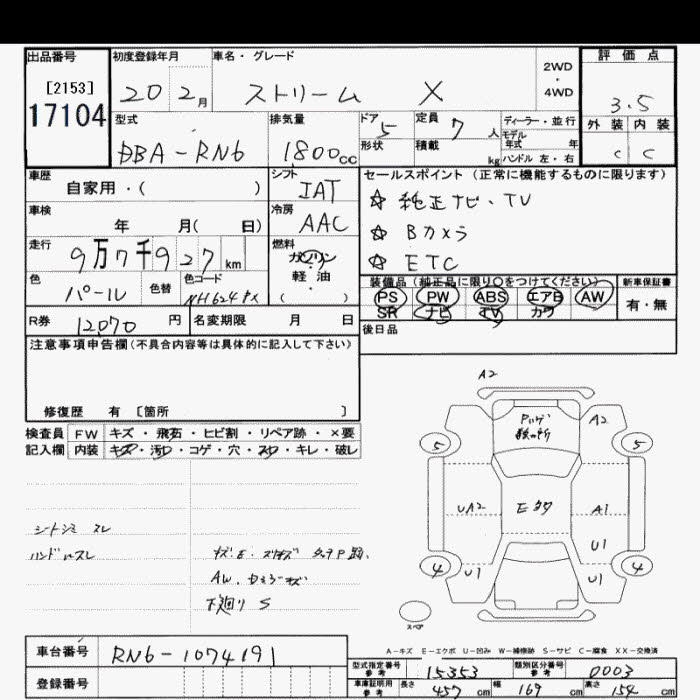 出品番号 初度登録年月 車名・グレード 評価点
[2153]
17104
20 2月 ストリーム X
2WD
・
4WD
3.5
外装 内装
C C
型式 排気量 ドア 定員 ディーラー・並行
DBA-RN6 1800cc 5 7人
モデル年式 年
形状 積載 kg ハンドル 左・右
車歴 シフト セールスポイント(正常に機能するものに限ります)
自家用・( ) IAT
☆ 純正ナビ・TV
車検 冷房
年 月( 日) AAC
☆ Bカメラ
走行 燃料
9万7千927km
ガソリン
軽油
( )
☆ ETC
色 色替 色コード
パール NH624PX
装備品(純正品に限り○をつけてください) 新車保証書
PS PW ABS エアB AW
SR ナビ TV カワ
有・無
R券 12070円 名変期限 月 日
後日品
注意事項申告欄(不具合内容等は具体的に記入して下さい)
修復歴 有 [箇所 ]
検査員 FW キズ・飛石・ヒビ割・リペア跡・×要
記入欄 内装 キズ・汚れ・コゲ・穴・スレ・キレ・破レ
シートシミ スレ
ハンドルスレ
AW.
下廻り S
A2
A2
5 5
UA2 A1
U1
4 U1 U1 4
スペア
A-キズ E-エクボ U-凹み W-補修跡 S-サビ C-腐食 XX-交換済
車台番号 RN6-1074191
登録番号
型式指定番号 参考 15353 類別区分番号 参考 0003
車庫証明用 参考 長さ 457cm 幅 169cm 高さ 154cm